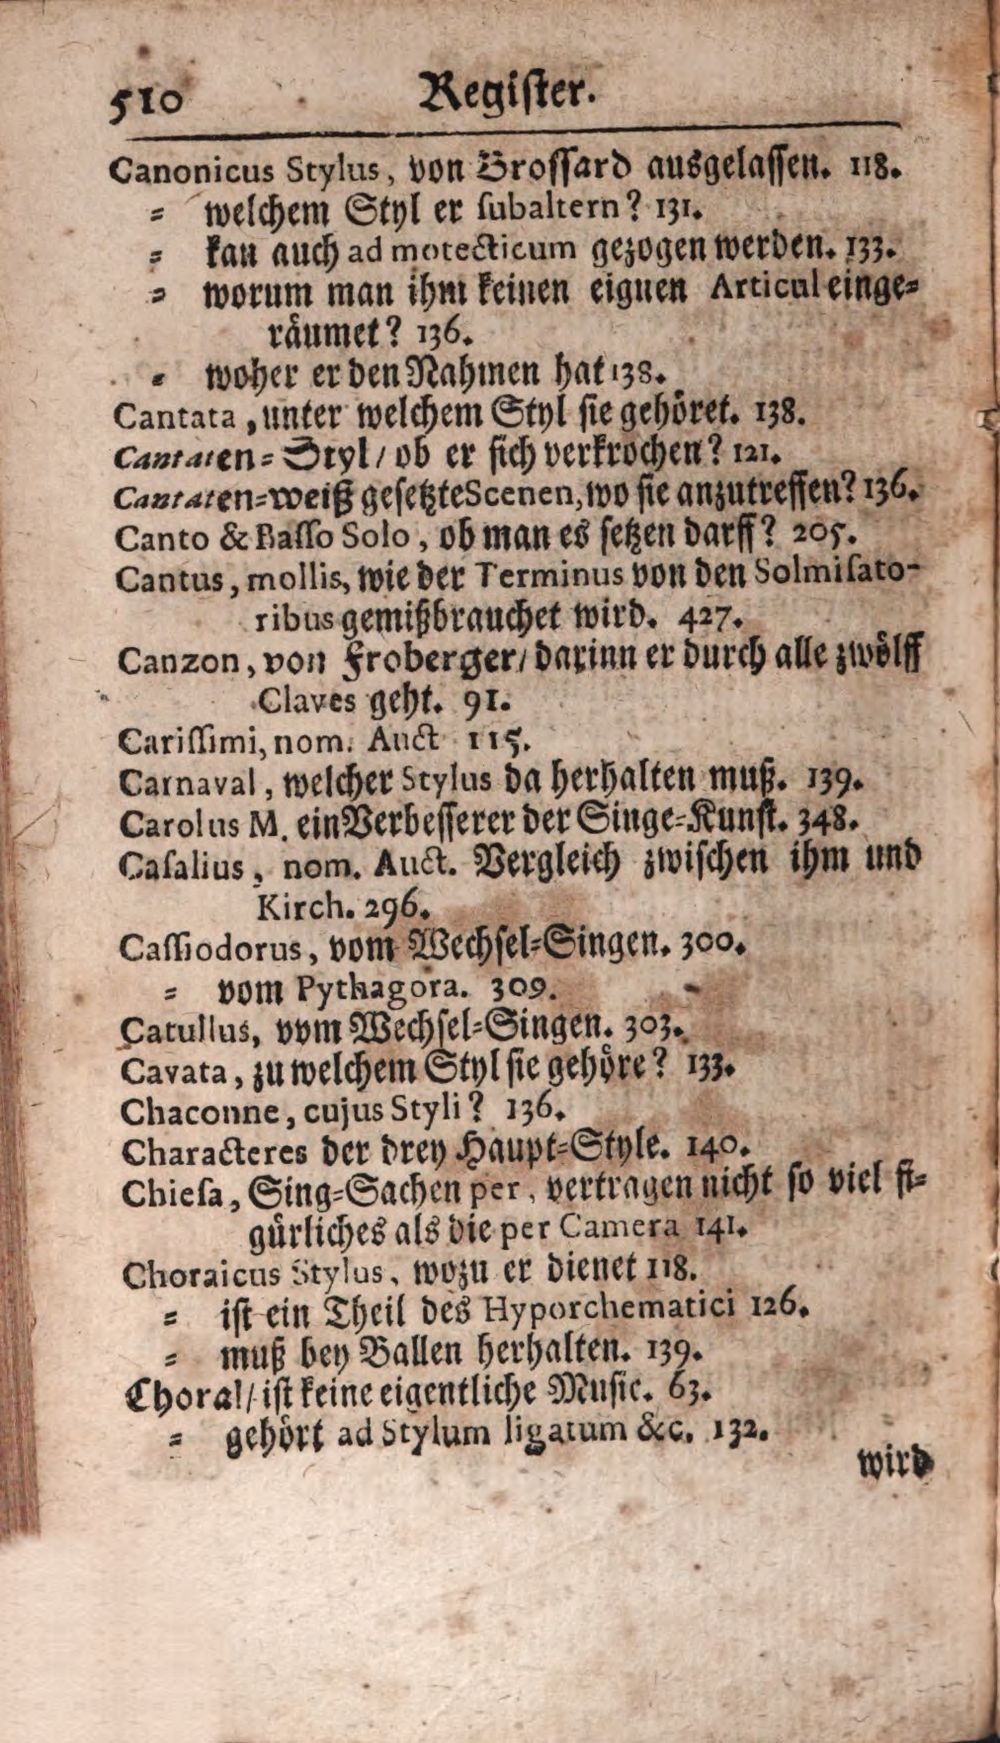 510 Register.
Canonicus Stylus, von Brossard ausgelassen. 118.
= welchem Styl er subaltern? 131.
= kan auch ad motecticum gezogen werden. 133.
= worum man ihm keinen eignen Articul einge=
räumet? 136.
= woher er den Nahmen hat 138.
Cantata, unter welchem Styl sie gehöret. 138.
Cantaten=Styl/ ob er sich verkrochen? 121.
Cantaten=weiß gesetzte Scenen, wo sie anzutreffen? 136.
Canto & Basso Solo, ob man es setzen darff? 205.
Cantus, mollis, wie der Terminus von den Solmisato-
ribus gemißbrauchet wird. 427.
Canzon, von Froberger/ darinn er durch alle zwölff
Claves geht. 91.
Carissimi, nom. Auct 115.
Carnaval, welcher Stylus da herhalten muß. 139.
Carolus M. ein Verbesserer der Singe=Kunst. 348.
Casalius, nom. Auct. Vergleich zwischen ihm und
Kirch. 296.
Cassiodorus, vom Wechsel=Singen. 300.
= vom Pythagora. 309.
Catullus, vom Wechsel=Singen. 303.
Cavata, zu welchem Styl sie gehöre? 133.
Chaconne, cujus Styli? 136.
Characteres der drey Haupt=Style. 140.
Chiesa, Sing=Sachen per, vertragen nicht so viel fi=
gürliches als die per Camera 141.
Choraicus Stylus, wozu er dienet 118.
= ist ein Theil des Hyporchematici 126.
= muß bey Ballen herhalten. 139.
Choral/ ist keine eigentliche Music. 63.
= gehört ad Stylum ligatum &c. 132.
wird